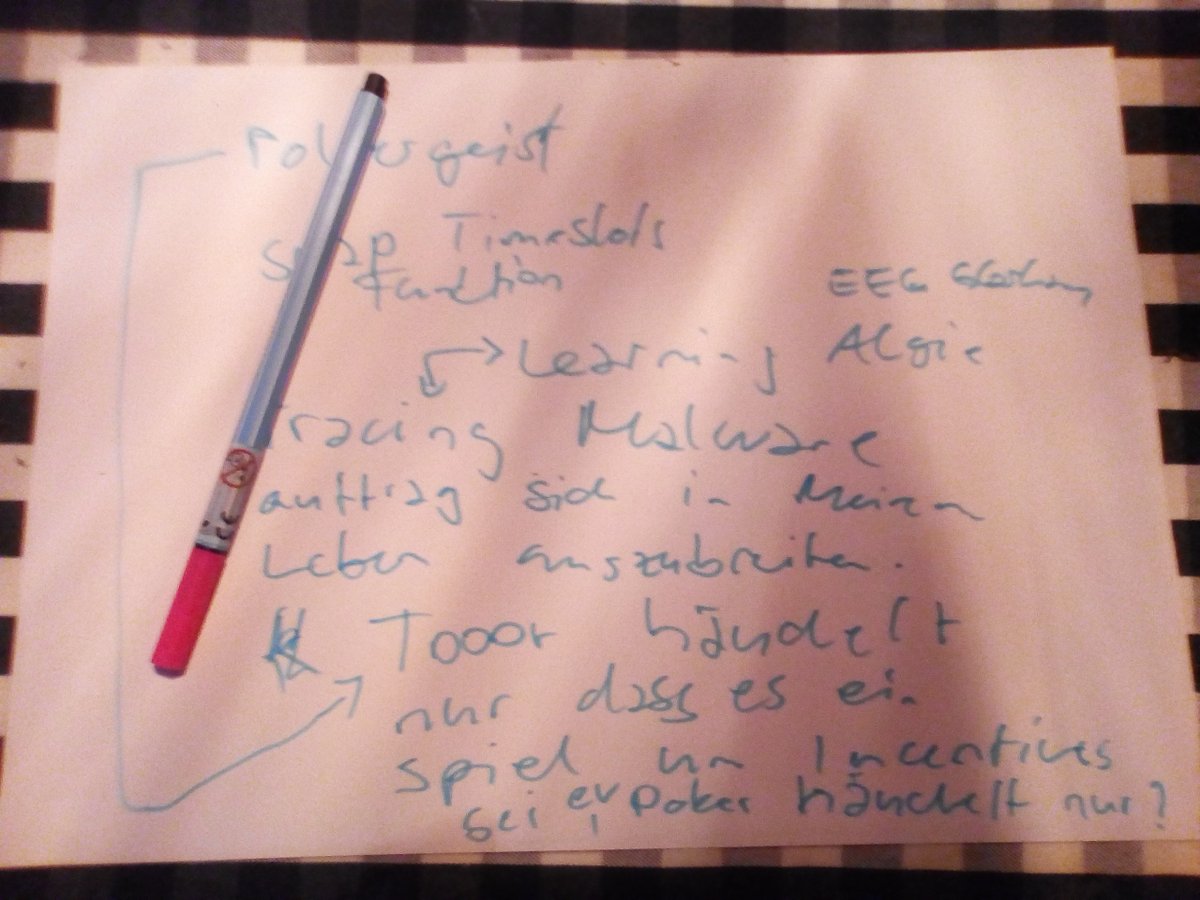 Poltergeist
Timeslots
Function
EEG
Learning Algie
Tracing Malware
auftrag sich in Meinen
Leben auszubreiten.
Tooor händelt
nur dass es ein
Spiel um Incentives
sei, ev Poker händelt nur?